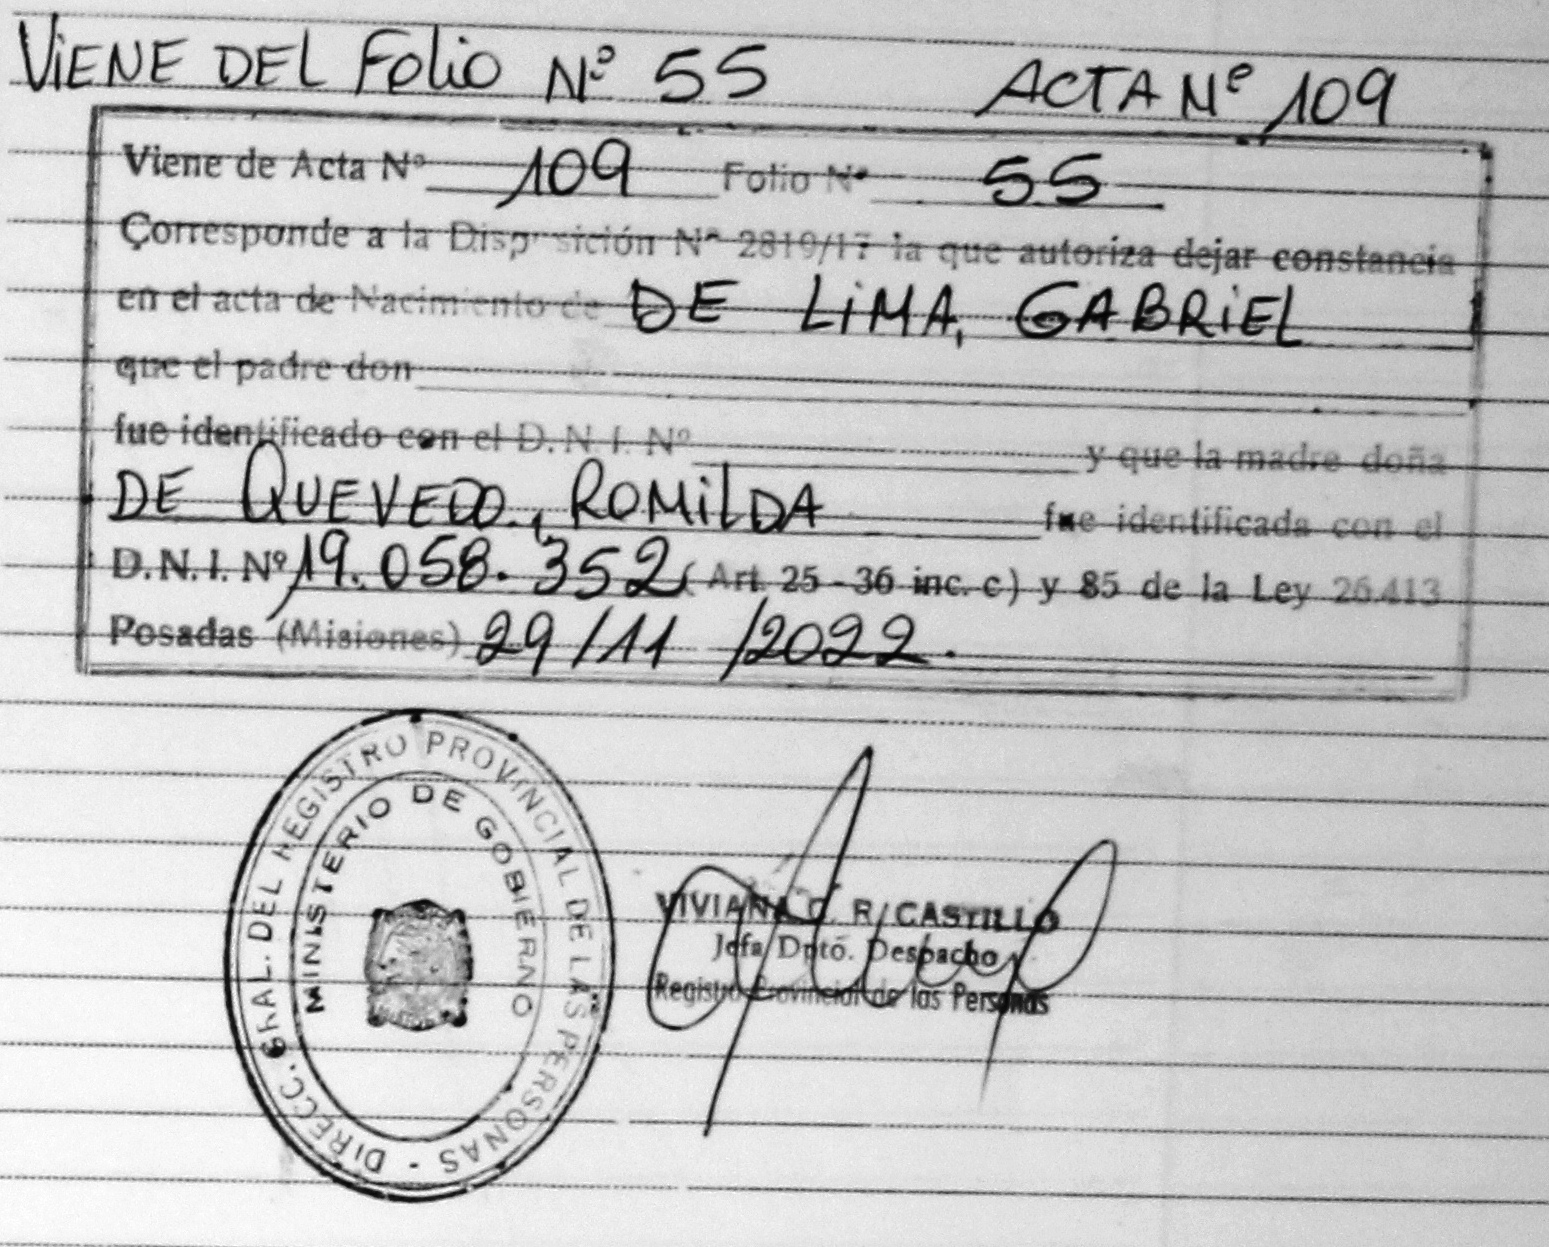 ViENE DEL Folio Nº 55 ACTA Nº 109
Viene de Acta Nº 109 Folio Nº 55
Corresponde a la Disposición Nº 2819/17 la que autoriza dejar constancia
en el acta de Nacimiento de DE LiMA, GABRiEL
que el padre don
fue identificado con el D.N.I. Nº y que la madre doña
DE QUEVEDO, ROMiLDA fue identificada con el
D.N.I. Nº 19.058.352 (Art. 25 - 36 inc. c) y 85 de la Ley 26.413
Posadas (Misiones) 29/11/2022.
DIRECC. GRAL. DEL REGISTRO PROVINCIAL DE LAS PERSONAS -
MINISTERIO DE GOBIERNO
VIVIANA R. CASTILLO
Jefa Dpto. Despacho
Registro Provincial de las Personas